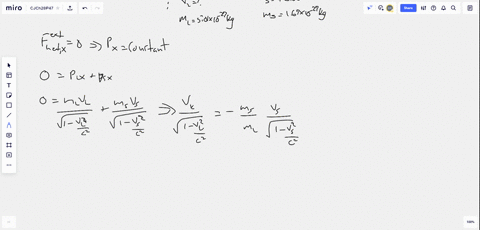 miro
CJ/CH28P47
Share
V_L =
m_L = 5.01×10^-28 kg
m_S = 1.67×10^-27 kg
F^ext_net,x = 0 ⇒ P_x = constant
0 = P_Lx + P_sx
0 = m_L V_L / √(1 - V_L²/c²) + m_s V_s / √(1 - V_s²/c²) ⇒ V_L / √(1 - V_L²/c²) = - m_s/m_L V_s / √(1 - V_s²/c²)
100%